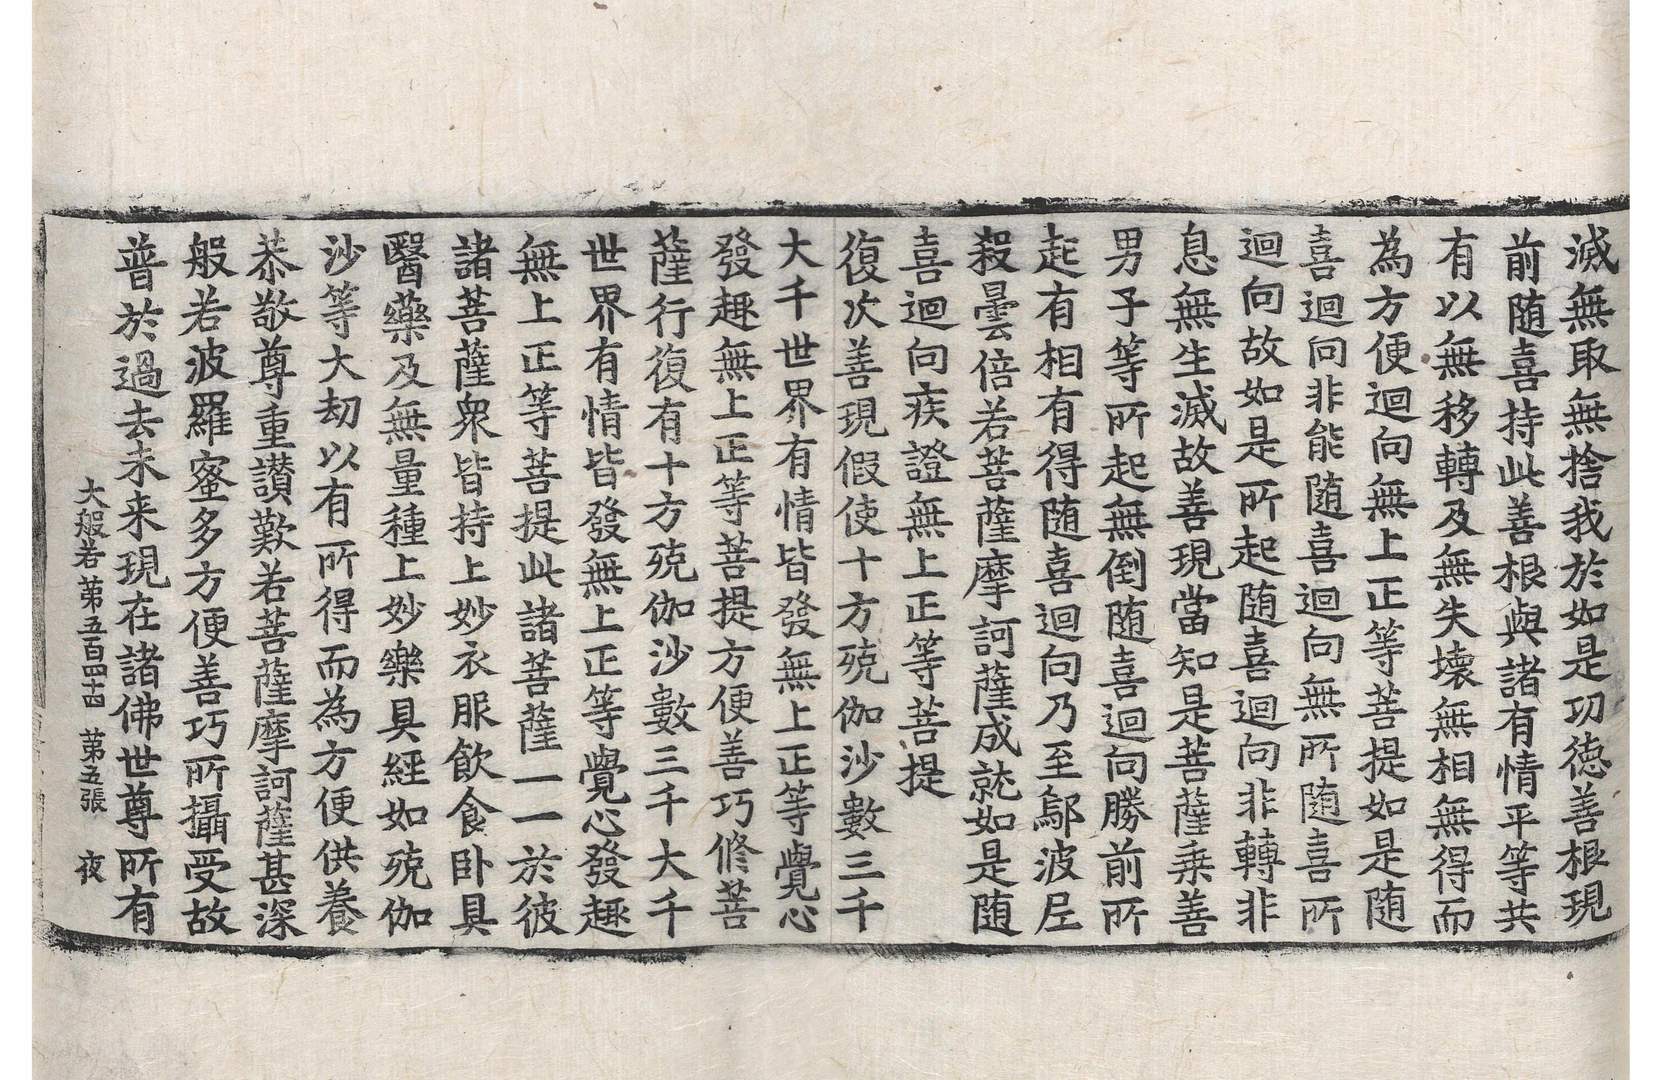 滅無取無捨我於如是功德善根現
前随喜持此善根與諸有情平等共
有以無移轉及無失壞無相無得而
為方便迴向無上正等菩提如是随
喜迴向非能随喜迴向無所随喜所
迴向故如是所起随喜迴向非轉非
息無生滅故善現當知是菩薩乗善
男子等所起無倒随喜迴向勝前所
起有相有得随喜迴向乃至鄔波尼
殺曇倍若菩薩摩訶薩成就如是随
喜迴向疾證無上正等菩提
復次善現假使十方殑伽沙數三千
大千世界有情皆發無上正等覺心
發趣無上正等菩提方便善巧修菩
薩行復有十方殑伽沙數三千大千
世界有情皆發無上正等覺心發趣
無上正等菩提此諸菩薩一一於彼
諸菩薩衆皆持上妙衣服飲食卧具
醫藥及無量種上妙樂具經如殑伽
沙等大劫以有所得而為方便供養
恭敬尊重讃歎若菩薩摩訶薩甚深
般若波羅蜜多方便善巧所攝受故
普於過去未来現在諸佛世尊所有
大般若 第五百四十四 第五張 夜